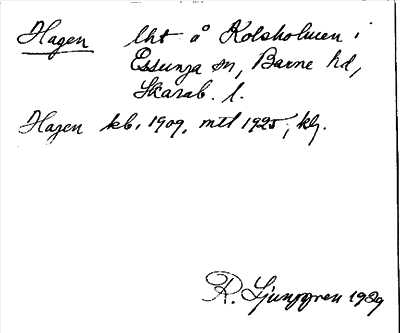 Hagen lht å Kolsholmen i
Essunga sn, Barne hd,
Skarab. l.
Hagen kb. 1909, mtl 1925, klg.
R. Ljunggren 1989